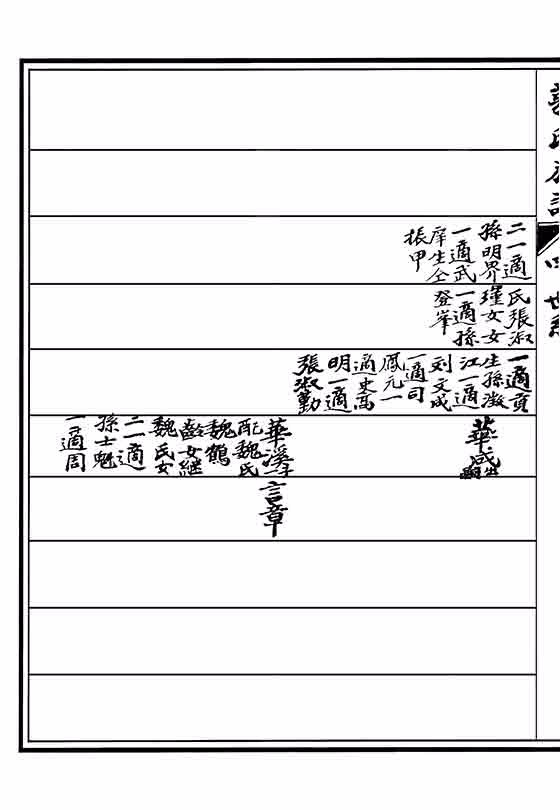 氏族譜
四世系
二一適
孫明界
一適武
庠生仝
振甲
氏張淑
瑾女女
一適孫
登峯
一適貢
生孫澂
江一適
刘文成
一適司
鳳元一
適史萬
明一適
張淑勤
華盛
華溪子
配魏氏
魏鶴
齡女継
魏氏女
二一適
孫士魁
一適周
言章